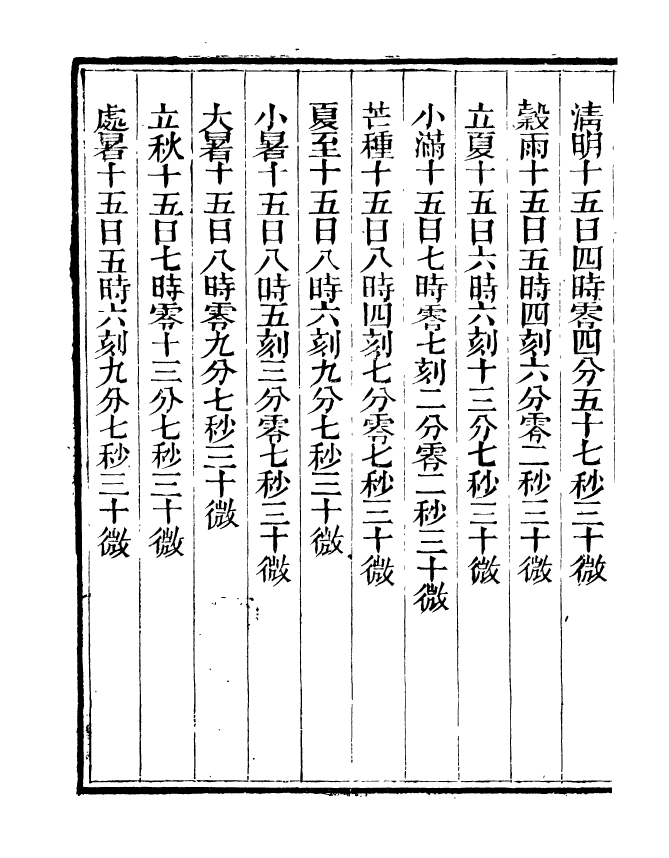 清明十五日四時零四分五十七秒三十微
穀雨十五日五時四刻六分零二秒三十微
立夏十五日六時六刻十三分七秒三十微
小滿十五日七時零七刻二分零二秒三十微
芒種十五日八時四刻七分零七秒三十微
夏至十五日八時六刻九分七秒三十微
小暑十五日八時五刻三分零七秒三十微
大暑十五日八時零九分七秒三十微
立秋十五日七時零十三分七秒三十微
處暑十五日五時六刻九分七秒三十微